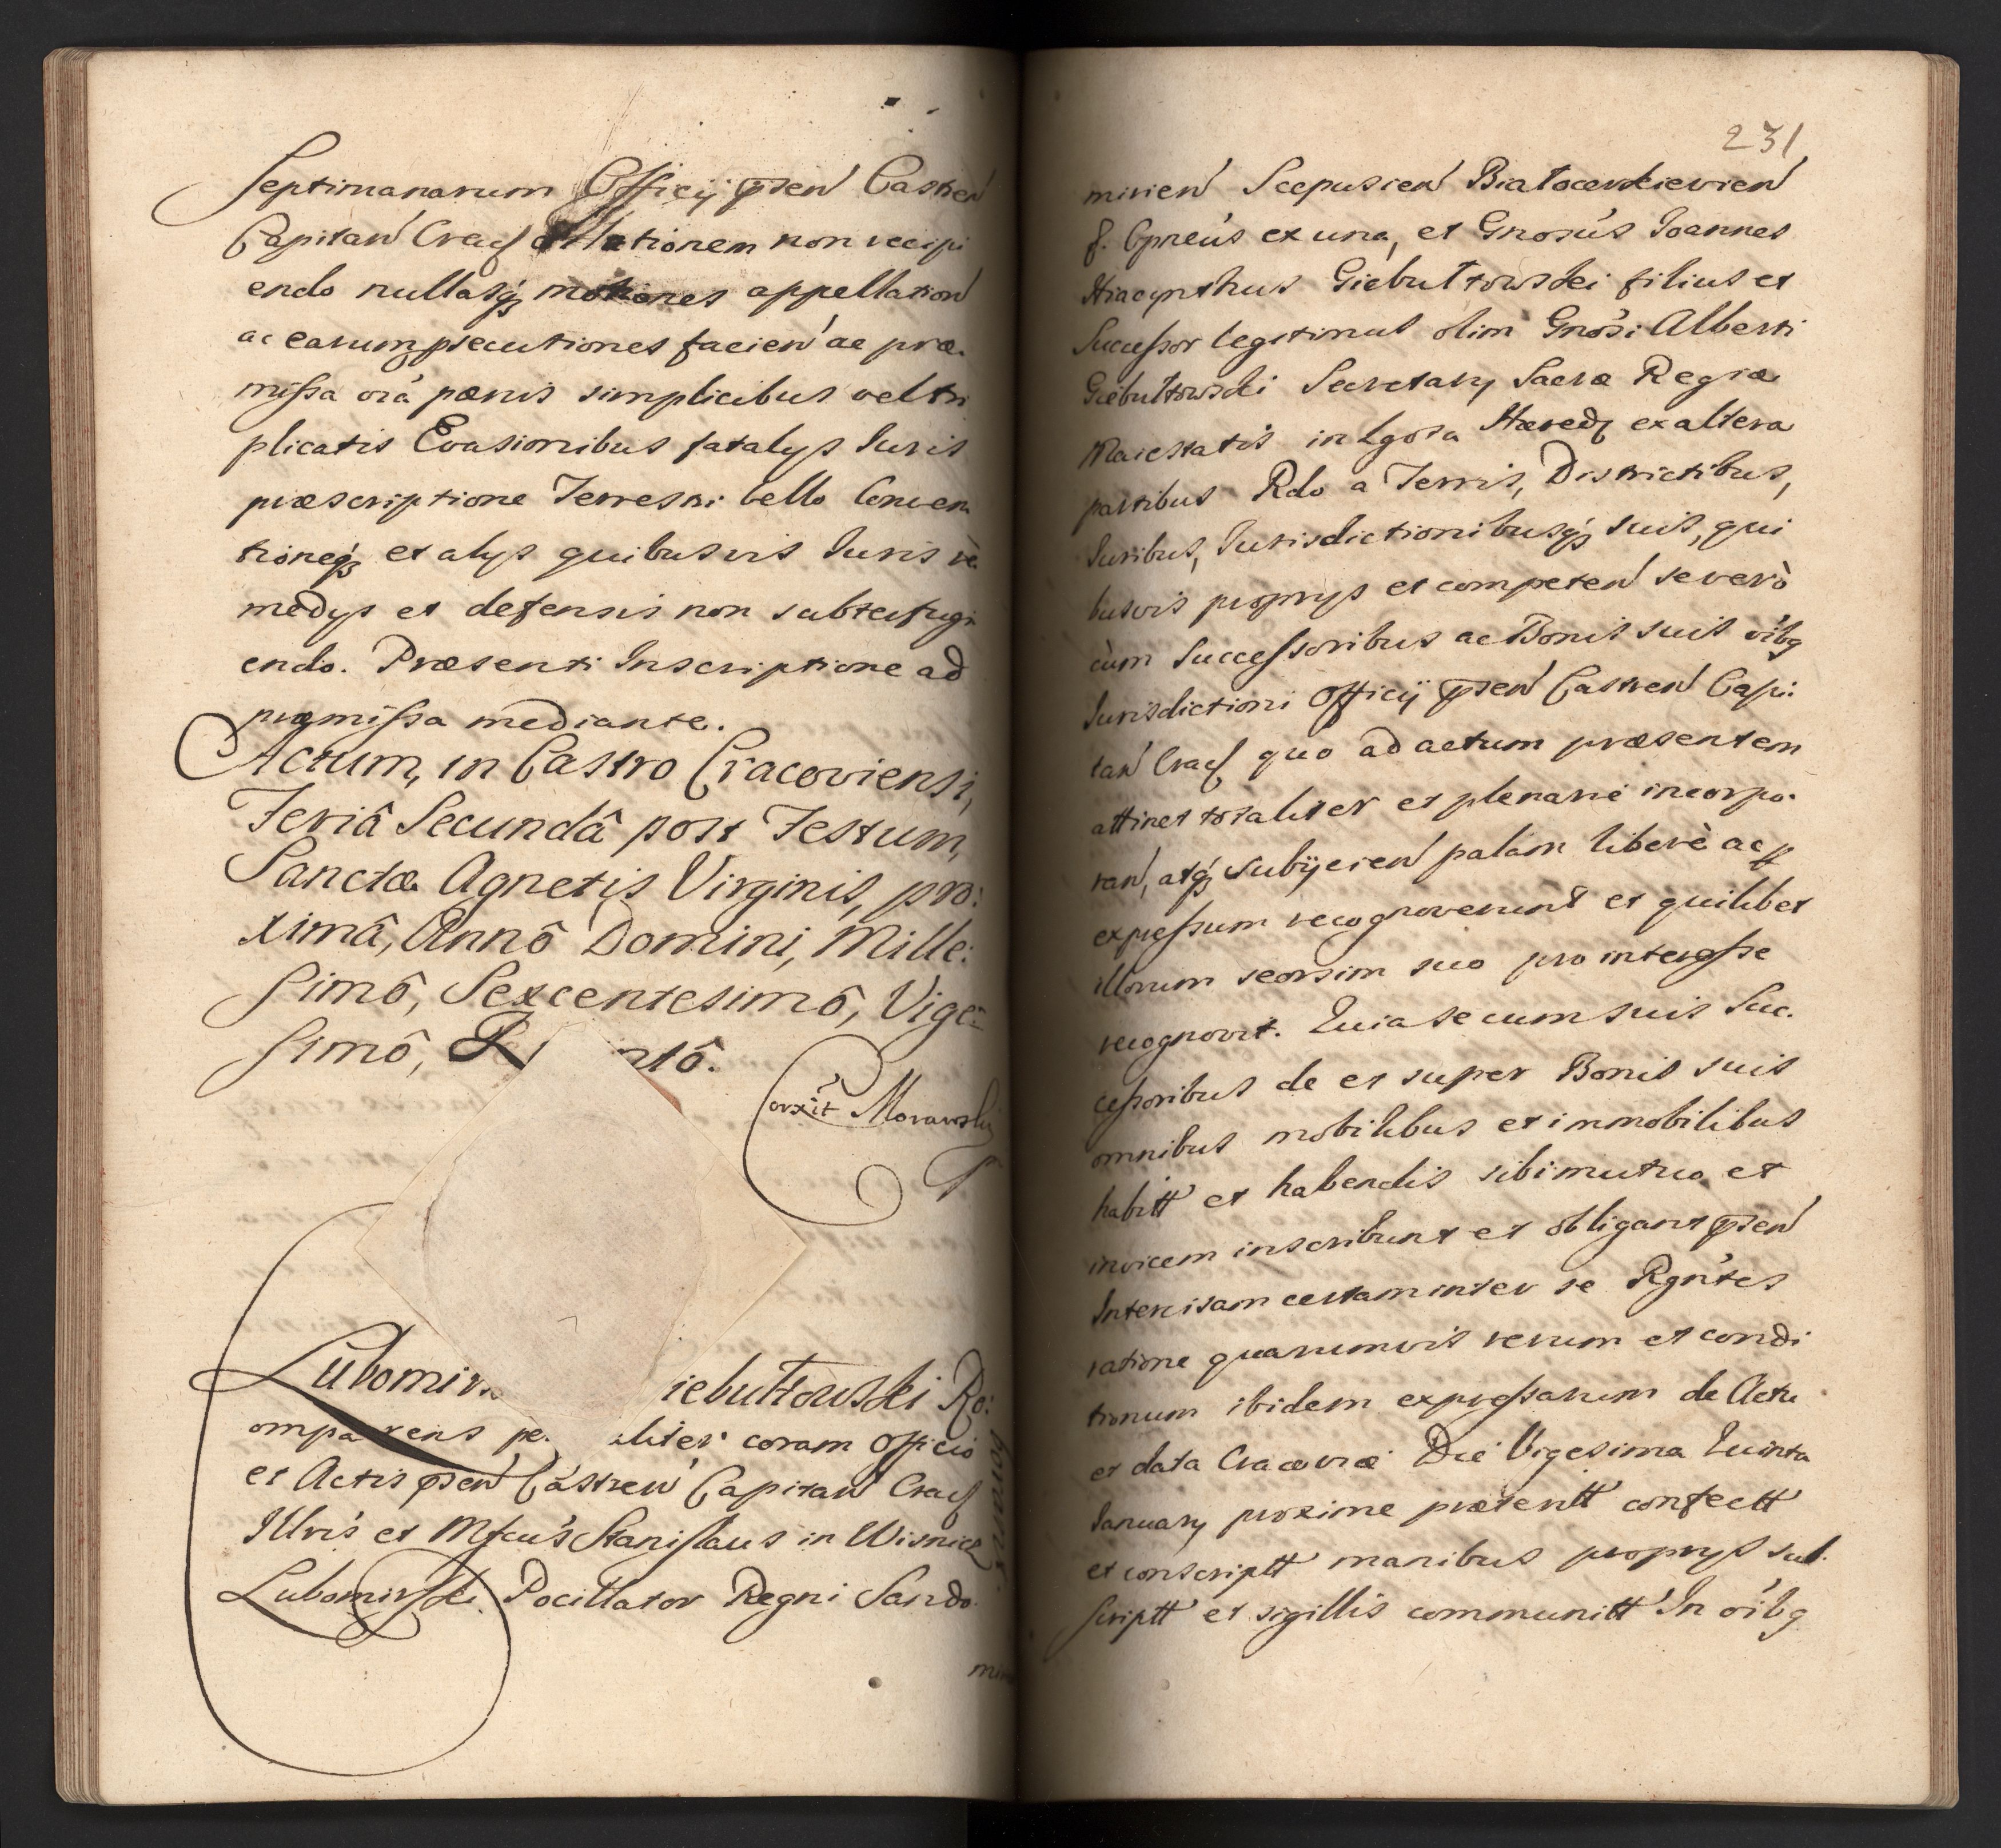 Septimanarum Officij pṡen Castren
Capitan Crac dilationem non recipi
endo nullasq motiones appellation
ac earum psecutiones facien ac præ.
missa oīa pœnis simplicibus vel tri
plicatis Evasionibus fatalys Iuris
præscriptione Terrestri bello Conven
tioneq et alys quibusvis Iuris re
medys et defensis non subterfugi
endo. Præsenti Inscriptione ad
præmissa mediante.
Actum, in Castro Cracoviensi,
Feriâ Secundâ post Festum,
Sanctæ Agnetis Virginis, pro:
ximâ, Annô Domini, Mille:
simô, Sexcentesimô, Vige:
simô, ntô.
Corxit Morawski
Lubomir iebułtowski Ro:
ompa rens pe liter coram Officio
et Actis pṡen Castren Capitan Crac
Illris et Mfcus Stanislaus in Wisnicz
Lubomirski Pocillator Regni Sando
boriae
mi
231
mirien Scepusien Białocerkievien
f. Cpneus ex una, et Gnosus Ioannes
Hiacynthus Giebułtowski filius et
Successor legitimus olim Gnosi Alberti
Giebułtowski Secretary Sacræ Regiæ
Maiestatis in Igora Hæred ex altera
partibus Rdo a Terris, Districtibus,
Iuribus, Iurisdictionibusq suis, qui
busvis proprys et competen severò
cùm Successoribus ac Bonis suis oībq
Iurisdictioni Officij pṡen Castren Capi:
tan Crac quo ad actum præsentem
attinet totaliter et plenariè incorpo.
ran, atq subijcien palàm liberè ac p
expressum recognoverunt et quilibet
illorum seorsim suo pro interesse
recognovit. Quia se cum suis Suc.
cessoribus de et super Bonis suis
omnibus mobilibus et immobilibus
habitt et habendis sibi mutuo et
invicem inscribunt et obligant pṡen
Intercisam certam inter se Rgntes
ratione quarumvis rerum et condi
tionum ibidem expressarum de Actu
et data Cracoviæ Die Vigesima Quinta
Ianuary proxime præteritt confectt
et conscriptt manibus proprys sub.
scriptt et sigillis communitt In oībq